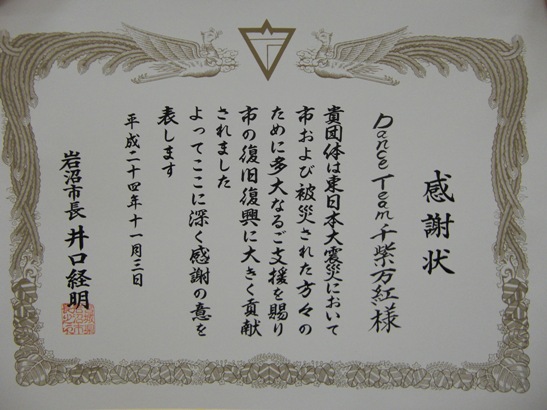 感謝状
Dance Team千紫万紅様
貴団体は東日本大震災において
市および被災された方々の
ために多大なるご支援を賜り
市の復旧復興に大きく貢献
されました
よってここに深く感謝の意を
表します
平成二十四年十一月三日
岩沼市長 井口経明